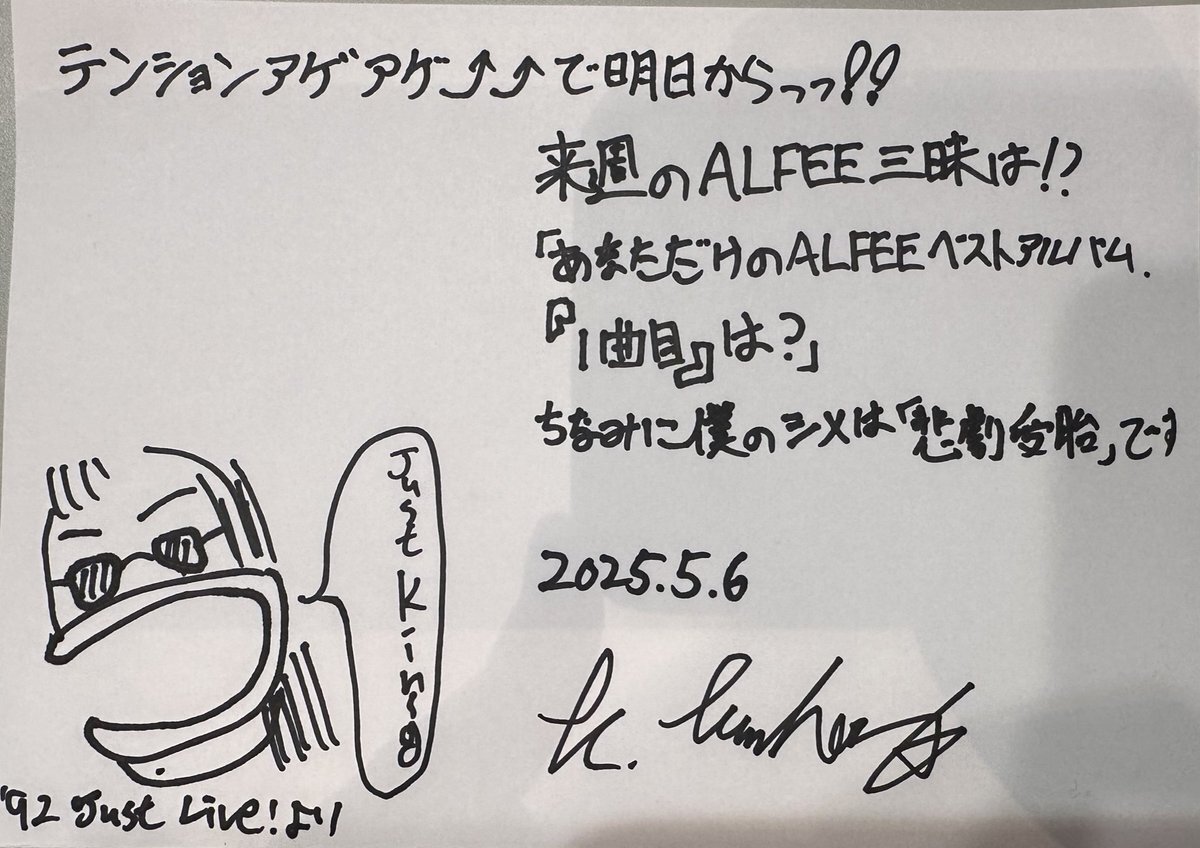 テンションアゲアゲ⤴⤴で明日からっっ!!
来週のALFEE三昧は!?
「あなただけのALFEEベストアルバム.
『1曲目』は?」
ちなみに僕のシメは「悲劇受胎」です
Just King
2025.5.6
K.
'92 Just Live!より